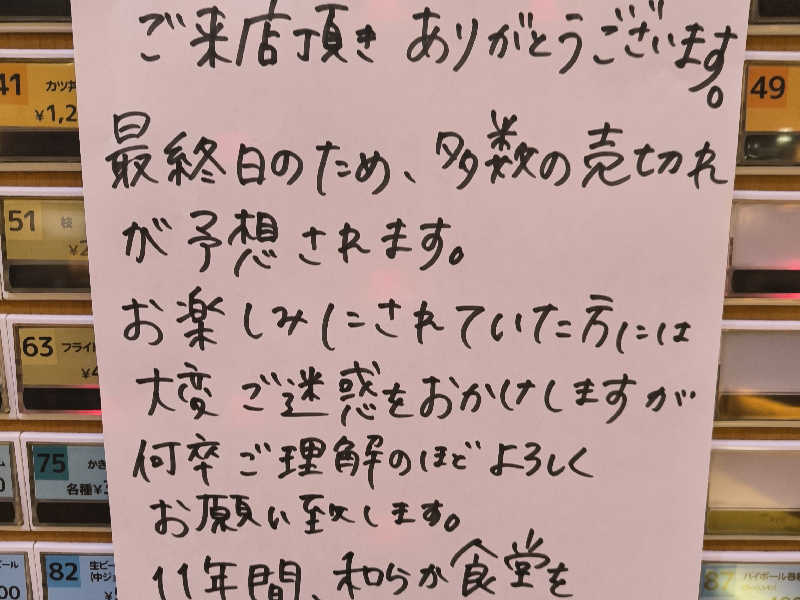 ご来店頂き ありがとうございます。
最終日のため、多数の売切れ
が予想されます。
お楽しみにされていた方には
大変ご迷惑をおかけしますが
何卒ご理解のほどよろしく
お願い致します。
11年間、和らか食堂を
41
カツ丼
¥1,2
49
51
枝
¥2
63
フライド
75
かき
各種¥3
82
生ビー
(中ジョ
87
ハイボール各種